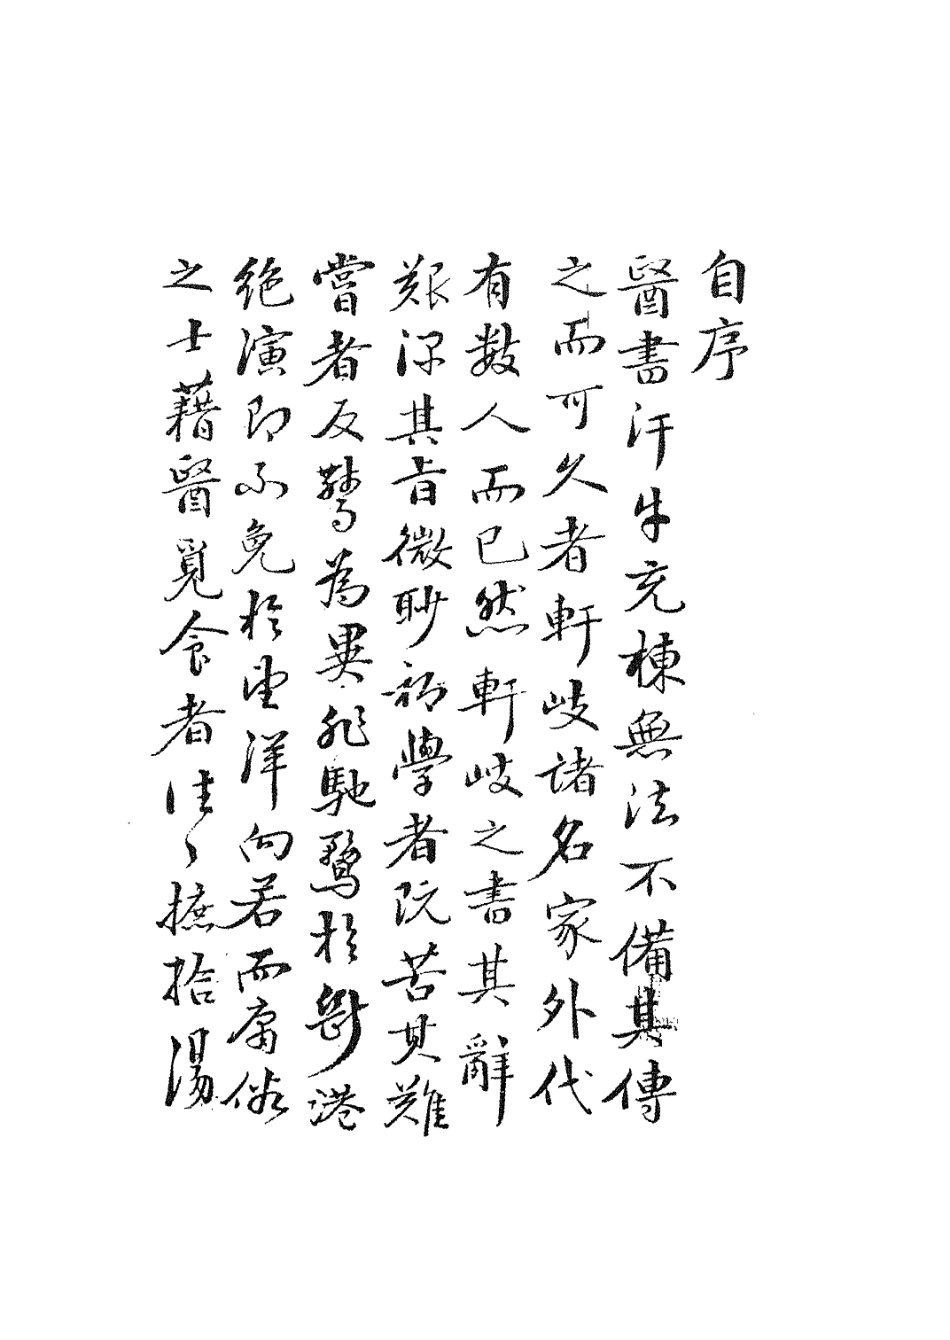 自序
醫書汗牛充棟無法不備其傳
之而可久者軒岐諸名家外代
有數人而已然軒岐之書其辭
艱深其旨微眇初學者既苦其難
嘗者反驚為異非馳騖於斷港
絶演即不免於望洋向若而庸俗
之士藉醫覓食者往〻摭拾湯